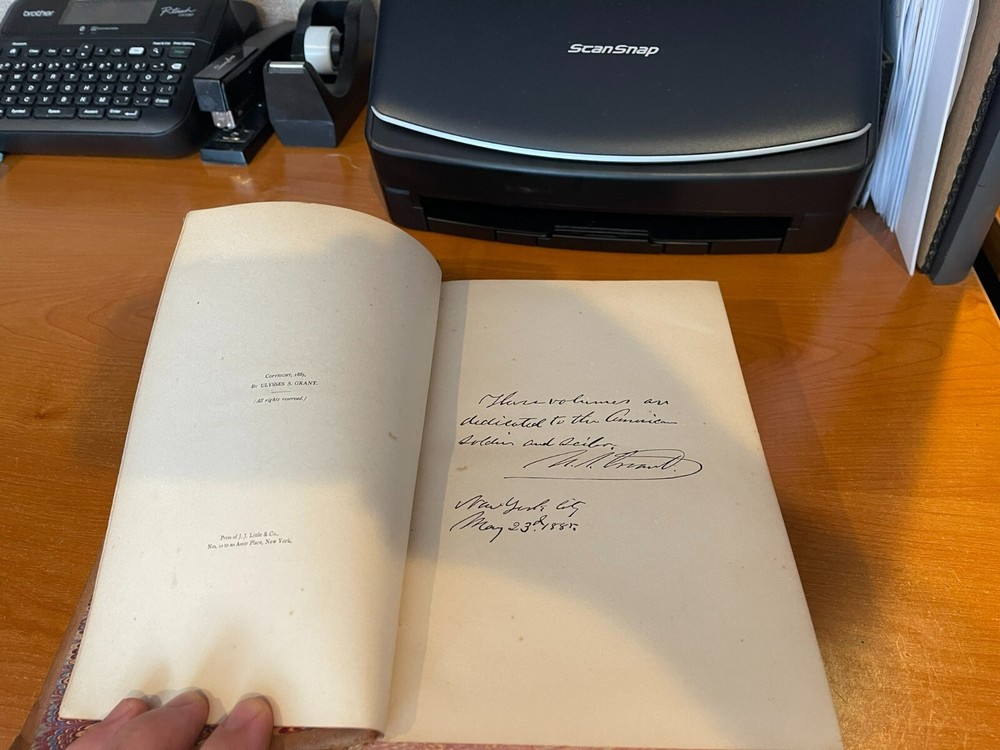 brother
P-touch
ScanSnap
COPYRIGHT, 1885,
BY ULYSSES S. GRANT.
(All rights reserved.)
Press of J. J. Little & Co.,
Nos. 10 to 20 Astor Place, New York.
These volumes are
dedicated to the American
soldier and sailor.
U. S. Grant.
New York City
May 23d. 1885.